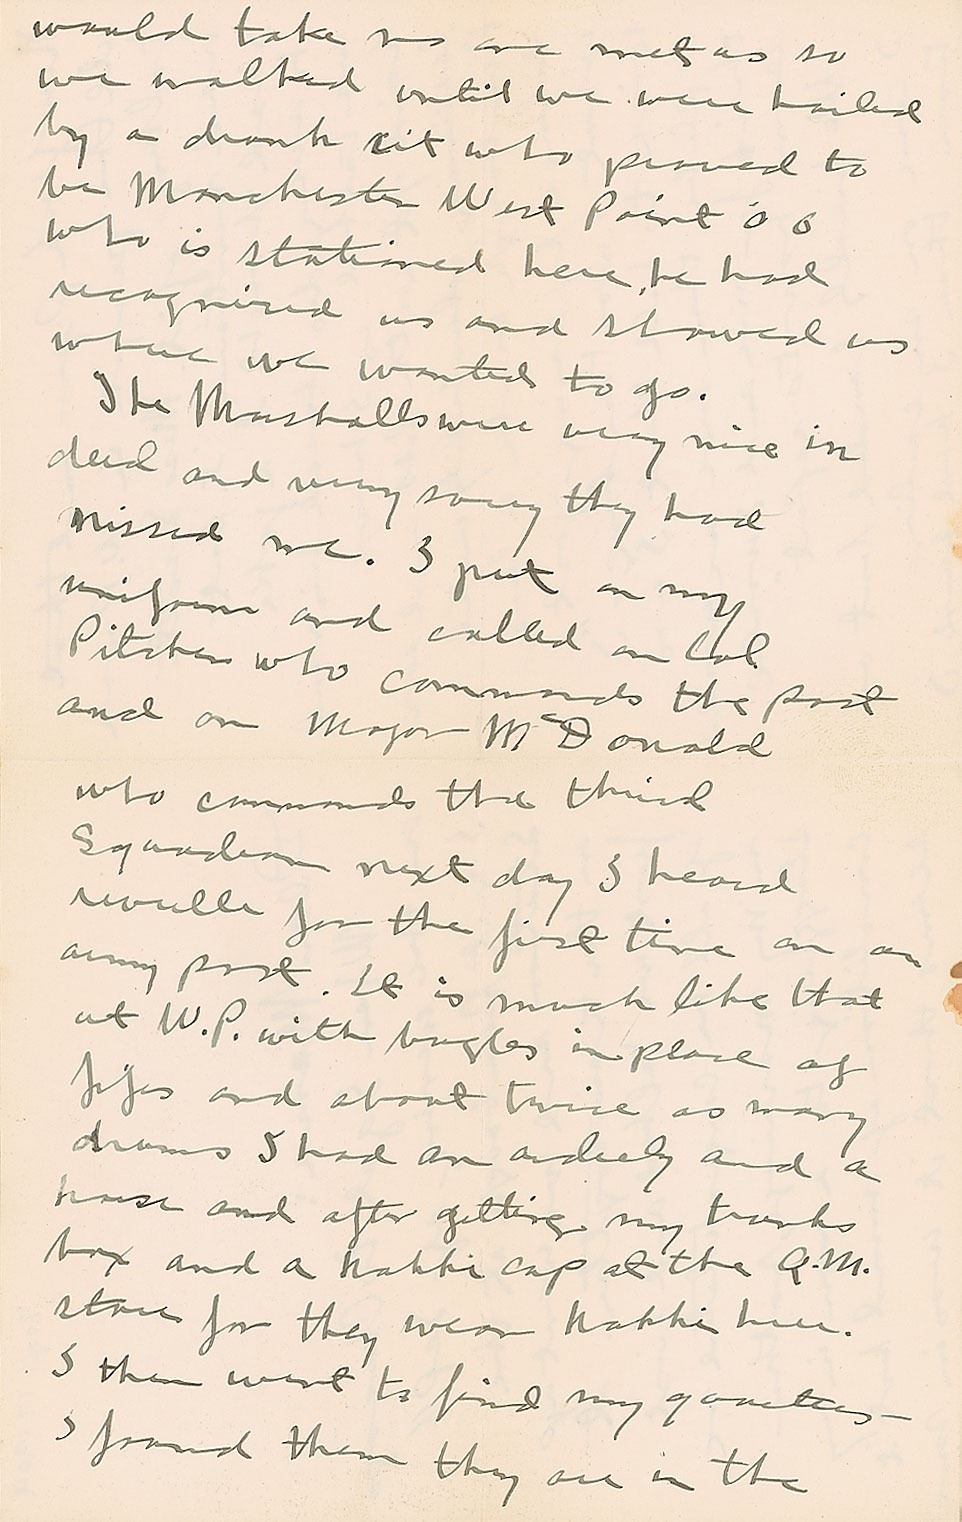 would take us one met us so
we walked until we were hailed
by a drunk cit who proved to
be Manchester West Point 06
who is stationed here, he had
recognized us and showed us
where we wanted to go.
The Marshalls were very nice in
deed and very sorry they had
missed me. I put on my
uniform and called on Col
Pitcher who commands the post
and on Major McDonald
who commands the third
Squadron next day I heard
revulle for the first time on an
army post. It is much like that
at W.P. with bugles in place of
fifes and about twice as many
drums I had an orderly and a
horse and after getting my trunks
box and a kakki cap at the Q.M.
store for they wear kakki here.
I then went to find my quarters—
I found them they are in the